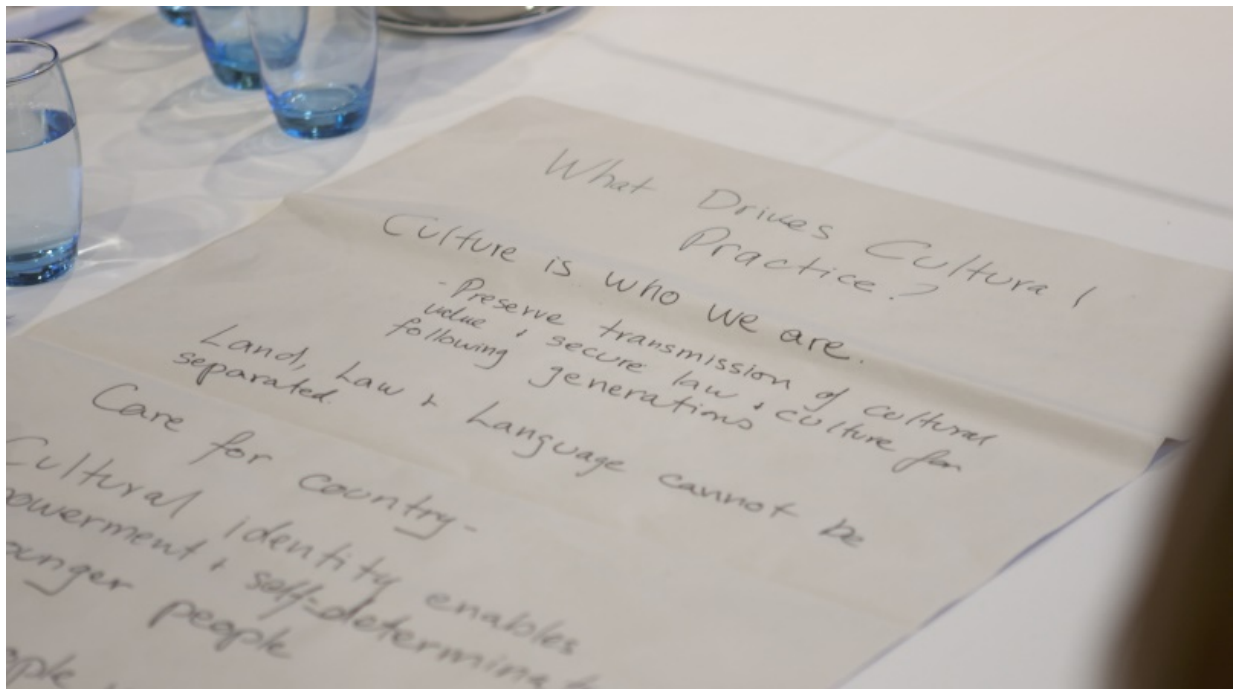 What Drives Cultural
Practice?
Culture is who we are.
- Preserve transmission of cultural
value & secure law & culture for
following generations
Land, Law & Language cannot be
separated.
Care for country-
Cultural identity enables
powerment & self-determinat
ounger people
ople